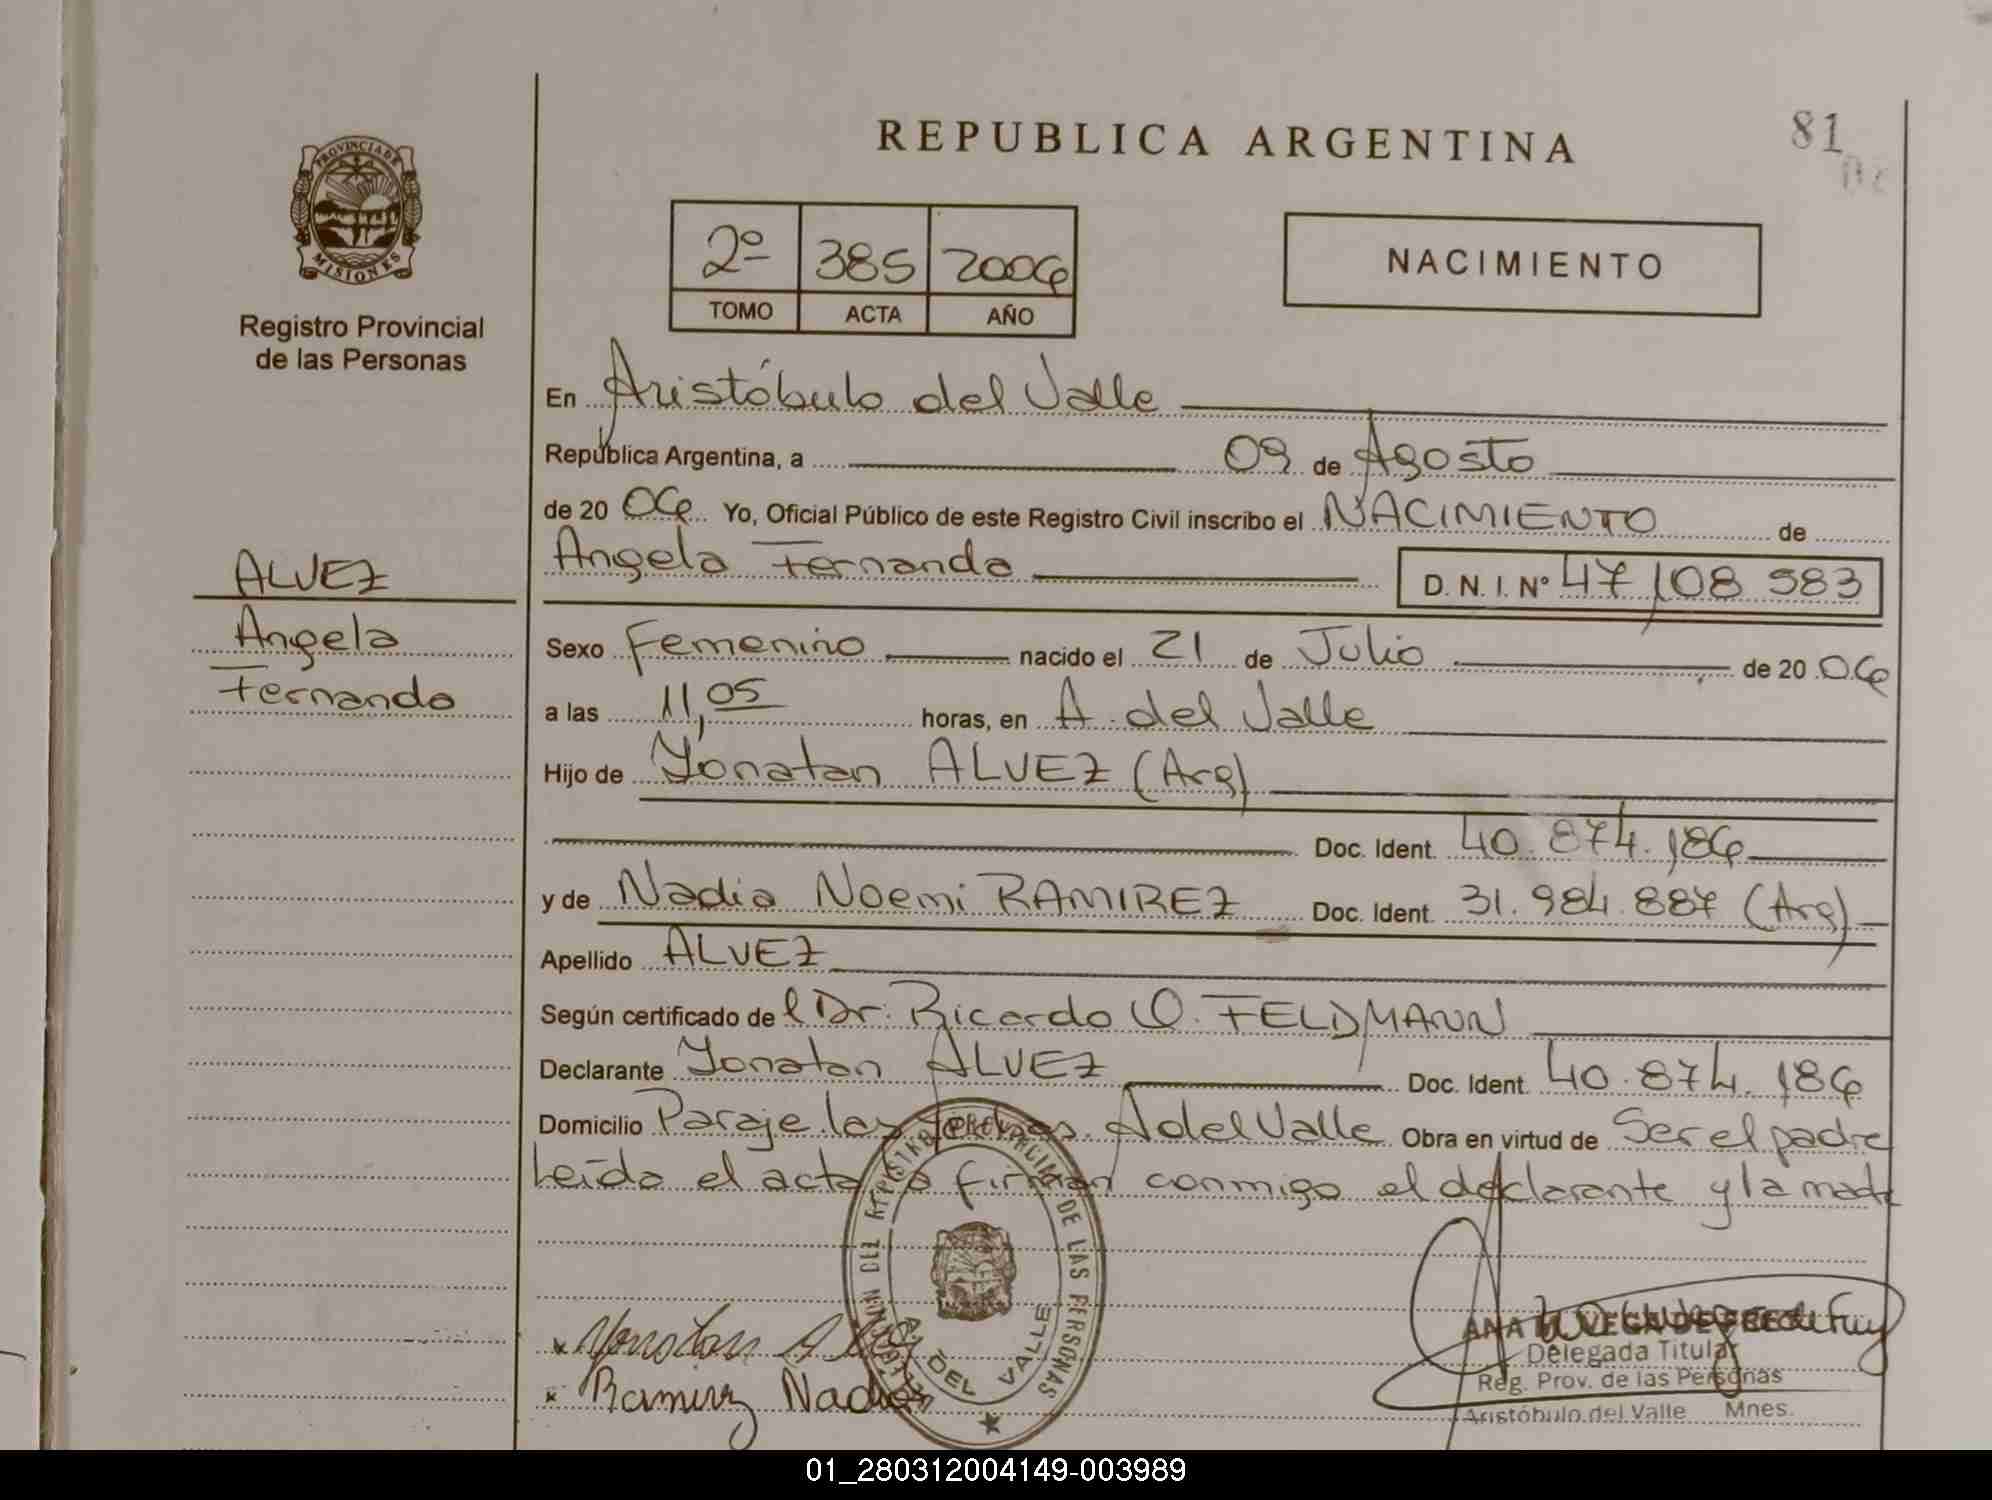 REPUBLICA ARGENTINA
81
PROVINCIA DE
MISIONES
Registro Provincial
de las Personas
2º 385 2006
TOMO ACTA AÑO
NACIMIENTO
En Aristóbulo del Valle
República Argentina, a 09 de Agosto
de 20 06 Yo, Oficial Público de este Registro Civil inscribo el NACIMIENTO de
ALVEZ
Angela Fernanda D. N. I. Nº 47.108 983
Angela
Fernanda
Sexo Femenino nacido el 21 de Julio de 20 06
a las 11,05 horas, en A. del Valle
Hijo de Yonatan ALVEZ (Arg)
Doc. Ident. 40.874.186
y de Nadia Noemi RAMIREZ Doc. Ident. 31.984.887 (Arg)
Apellido ALVEZ
Según certificado de l Dr. Ricardo O. FELDMANN
Declarante Yonatan ALVEZ Doc. Ident. 40.874.186
Domicilio Paraje las A del Valle Obra en virtud de Ser el padre
Leída el acta firman conmigo el declarante y la madre
REGISTRO PROVINCIAL DE LAS PERSONAS
DEL VALLE
Yonatan
Ramirez Nadia
ANA
Delegada Titular
Reg. Prov. de las Personas
Aristóbulo del Valle Mnes.
01_280312004149-003989